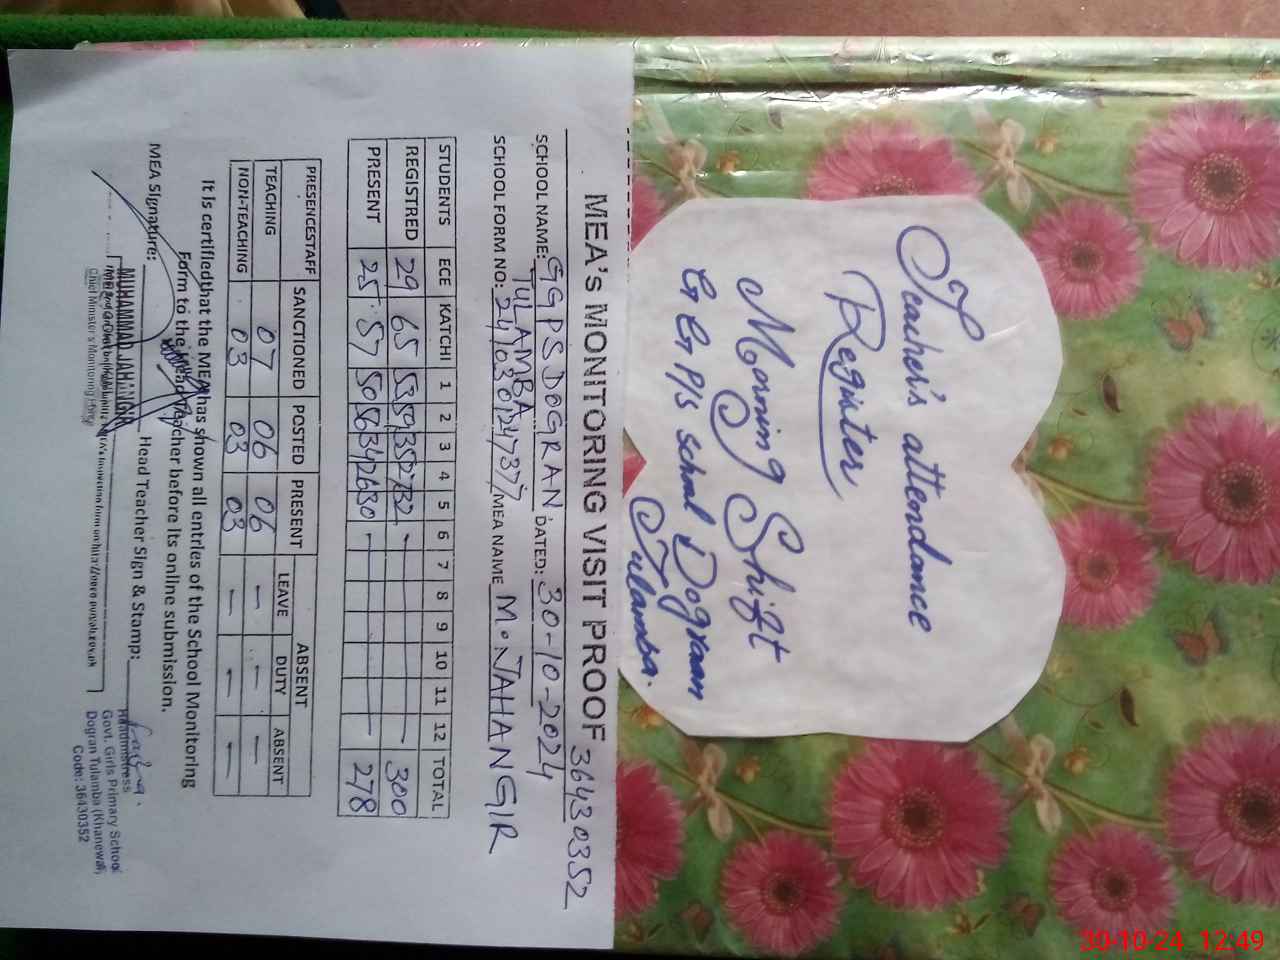 Teacher's attendance
Register
Morning Shift
G G P/s school Dogran
Tulamba.
MEA's MONITORING VISIT PROOF 36430352
SCHOOL NAME: GGPS DOGRAN DATED: 30-10-2024
TULAMBA
SCHOOL FORM NO: MEA NAME M. JAHANGIR
STUDENTS ECE KATCHI 1 2 3 4 5 6 7 8 9 10 11 12 TOTAL
REGISTRED 29 65 53 59 35 27 32 - 300
PRESENT 25 57 50 56 34 26 30 - 278
PRESENCESTAFF SANCTIONED POSTED PRESENT ABSENT
LEAVE DUTY ABSENT
TEACHING 07 06 06 - - -
NON-TEACHING 03 03 03 - - -
It is certified that the MEA has shown all entries of the School Monitoring
Form to the Head Teacher before its online submission.
MEA Signature: Head Teacher Sign & Stamp:
MUHAMMAD JAHANGIR
Chief Minister's Monitoring Force
Headmistress
Govt. Girls Primary School
Dogran Tulamba (Khanewal)
Code: 36430352
30-10-24 12:49